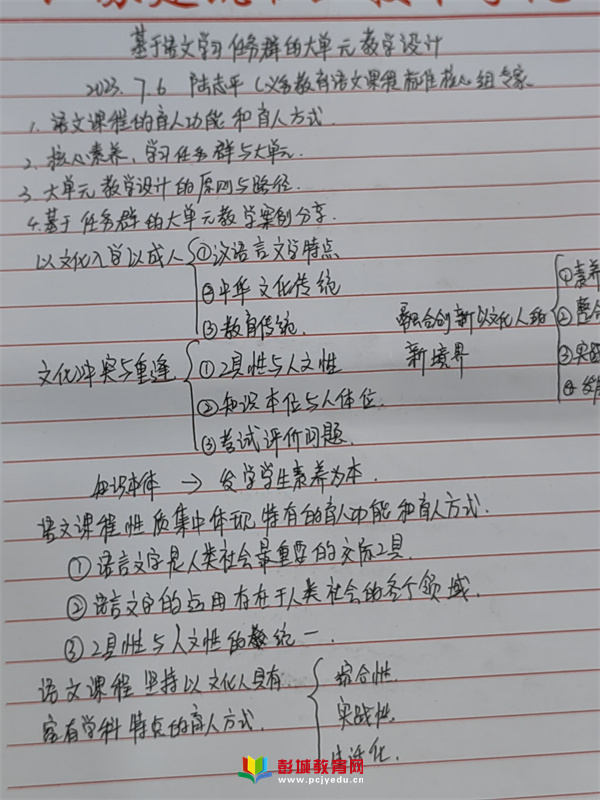 基于语文学习任务群的大单元教学设计
2023.7.6 陆志平 (义务教育语文课程标准核心组专家
1. 语文课程的育人功能和育人方式.
2. 核心素养、学习任务群与大单元.
3. 大单元教学设计的原则与路径.
4. 基于任务群的大单元教学案例分享.
以文化人学以成人 ①汉语言文字特点
②中华文化传统
③教育传统.
融合创新以文化人的新境界
①素养
②整合
③实践
④发
文化冲突与重逢 ①工具性与人文性
②知识本位与人体位
③考试评价问题.
知识本体 → 发学学生素养为本.
语文课程性质集中体现特有的育人功能和育人方式.
①语言文字是人类社会最重要的交际工具.
②语言文字的运用存在于人类社会的各个领域.
③工具性与人文性的统一.
语文课程坚持以文化人具有
富有学科特点的育人方式.
综合性.
实践性.
生活化.
彭城教育网
www.pcjyedu.cn